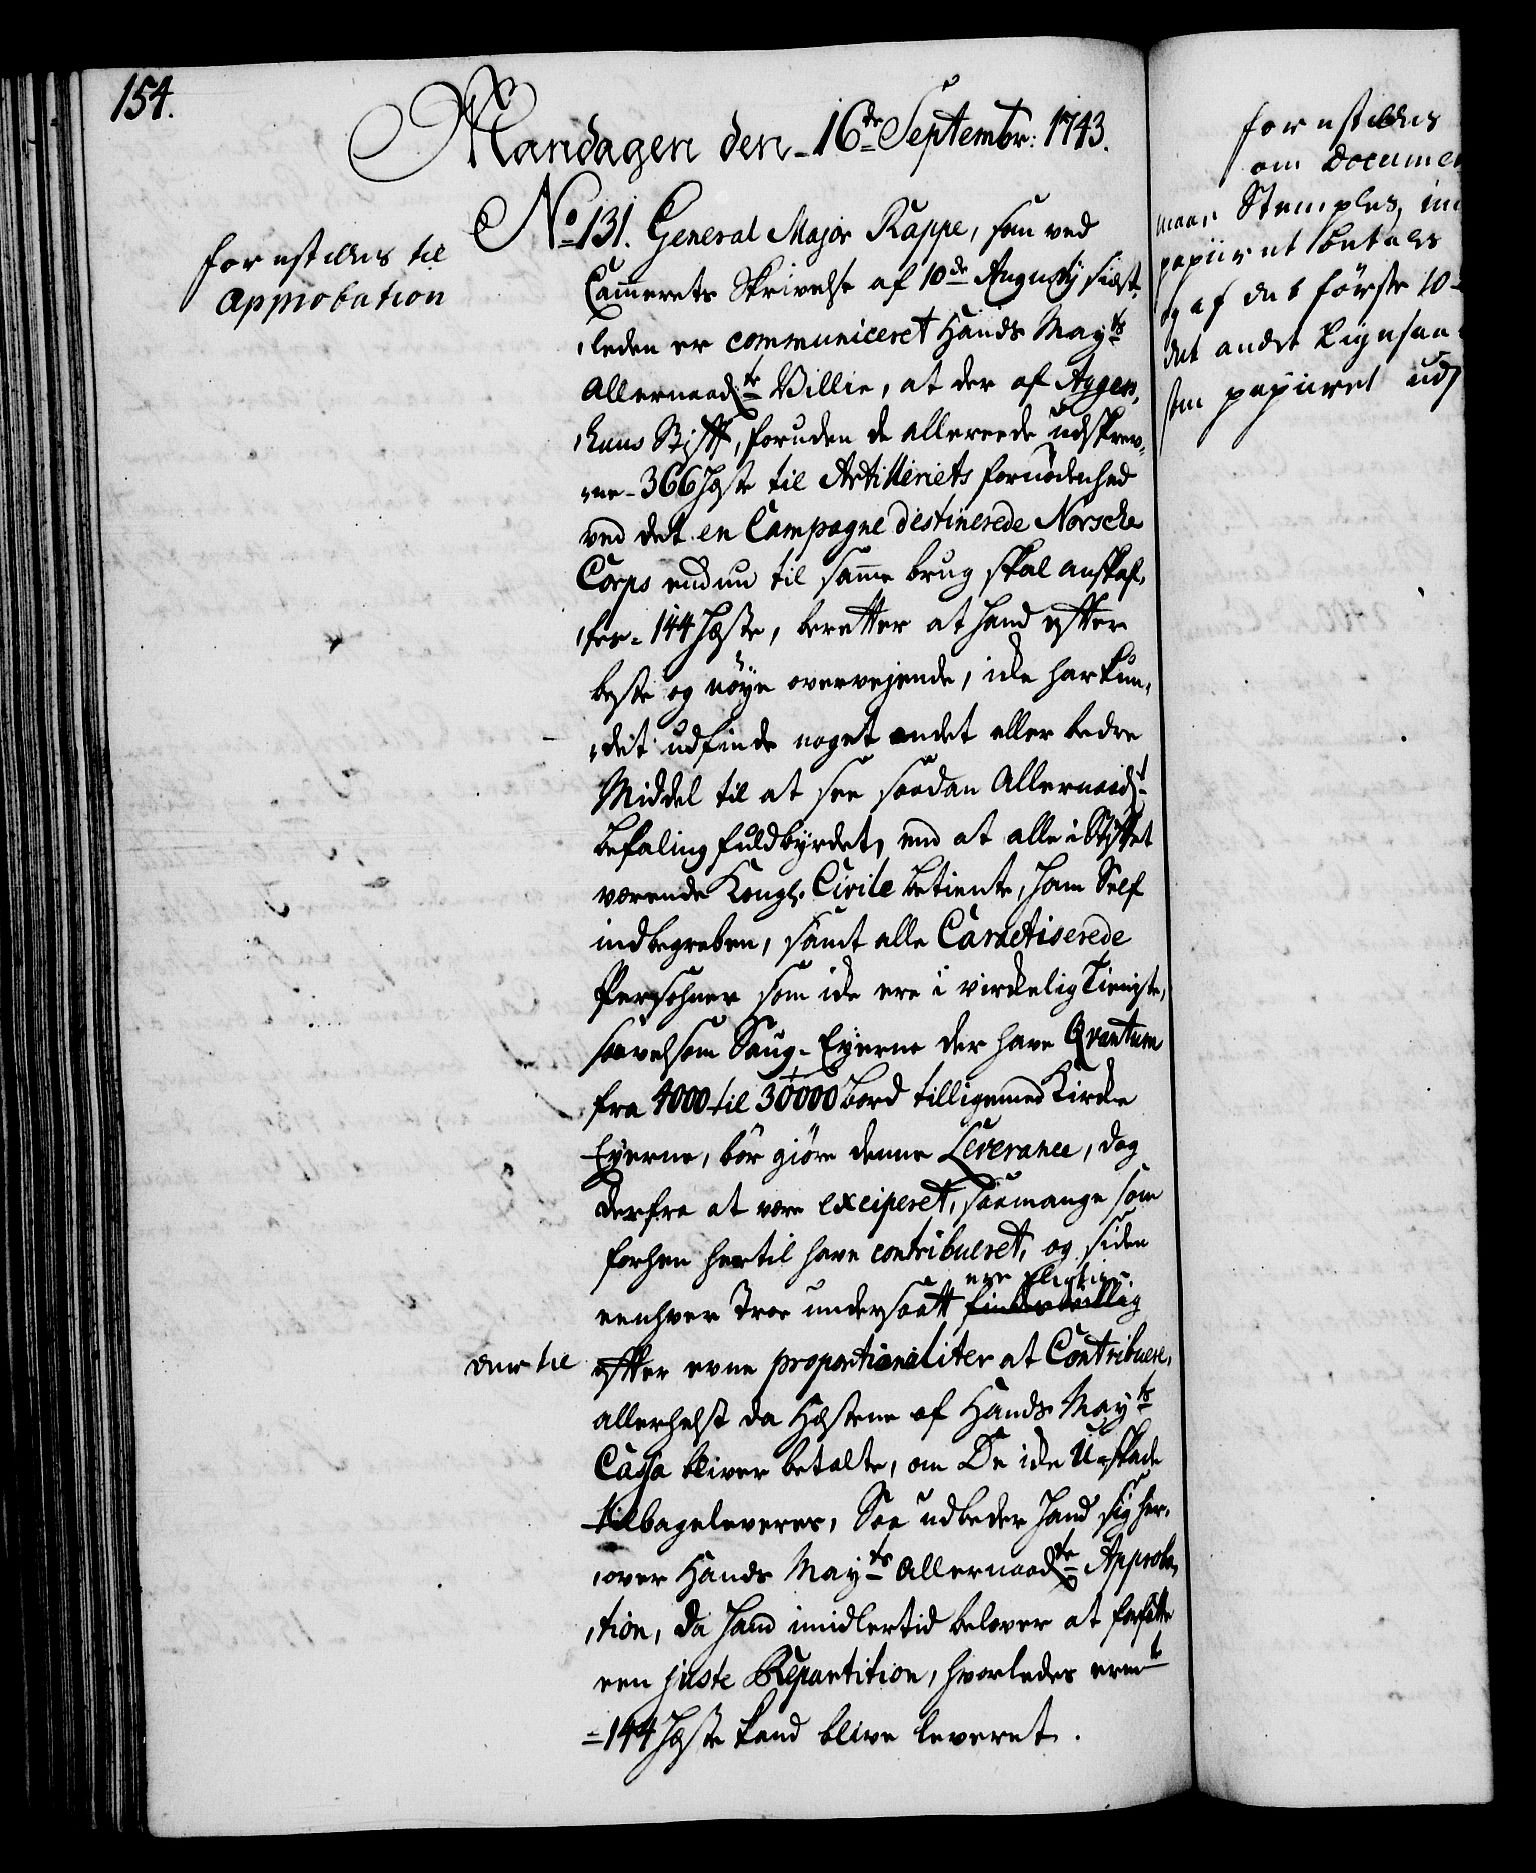 154.
Mandagen den 16de Septembr: 1743.
forestilles til
approbation
No 131. General Major Rappe, som ved
Cammerets Skrivelse af 10de Augustij sidst-
leden er communiceret Hands Mayts
Allernaadte Villie, at der af Agger,
huus Stift, foruden de allereede udskrev,
ne 366 Hæste til Artilleriets fornødenhed
ved det en Campagne destinerede Norsche
Corps endnu til samme brug skal anskaf,
fes 144 Hæste, beretter at hand efter
beste og nöye overvejende, icke har kun,
det udfinde noget andet eller bedre
Middel til at see saadan Allernaadt
befaling fuldbyrdet, end at alle i Stiftet
værende Kongl. Civile betiente, ham Self
indbegreben, samt alle Caractiserede
Persohner som icke ere i virckelig Tieniste,
saavelsom Saug-Eyerne der have Qvantum
fra 4000 til 30000 bord tilligemed Kircke
Eyerne, bör giöre denne Leverance, dog
derfra at være exciperet, saamange som
forhen hertil have contribueret, og siden
eenhver Troe undersaatt findes villig
ere pligtige
der til
efter evne proportionaliter at Contribuere,
allerhelst da Hæstene af Hands Mayts
Cassa bliver betalte, om De icke Uskade
tilbageleveres, Saa udbeder hand sig her,
over Hands Mayts Allernaadte Approba,
tion, da hand imidlertid belover at forfatte
een juste Repartition, hvorledes ermte
144 Hæste kand blive leveret.
forestilles
om Documen
maa, Stemples, im
papiiret betales
og af det förste 10
det andet ligesaa
som papiiret uds